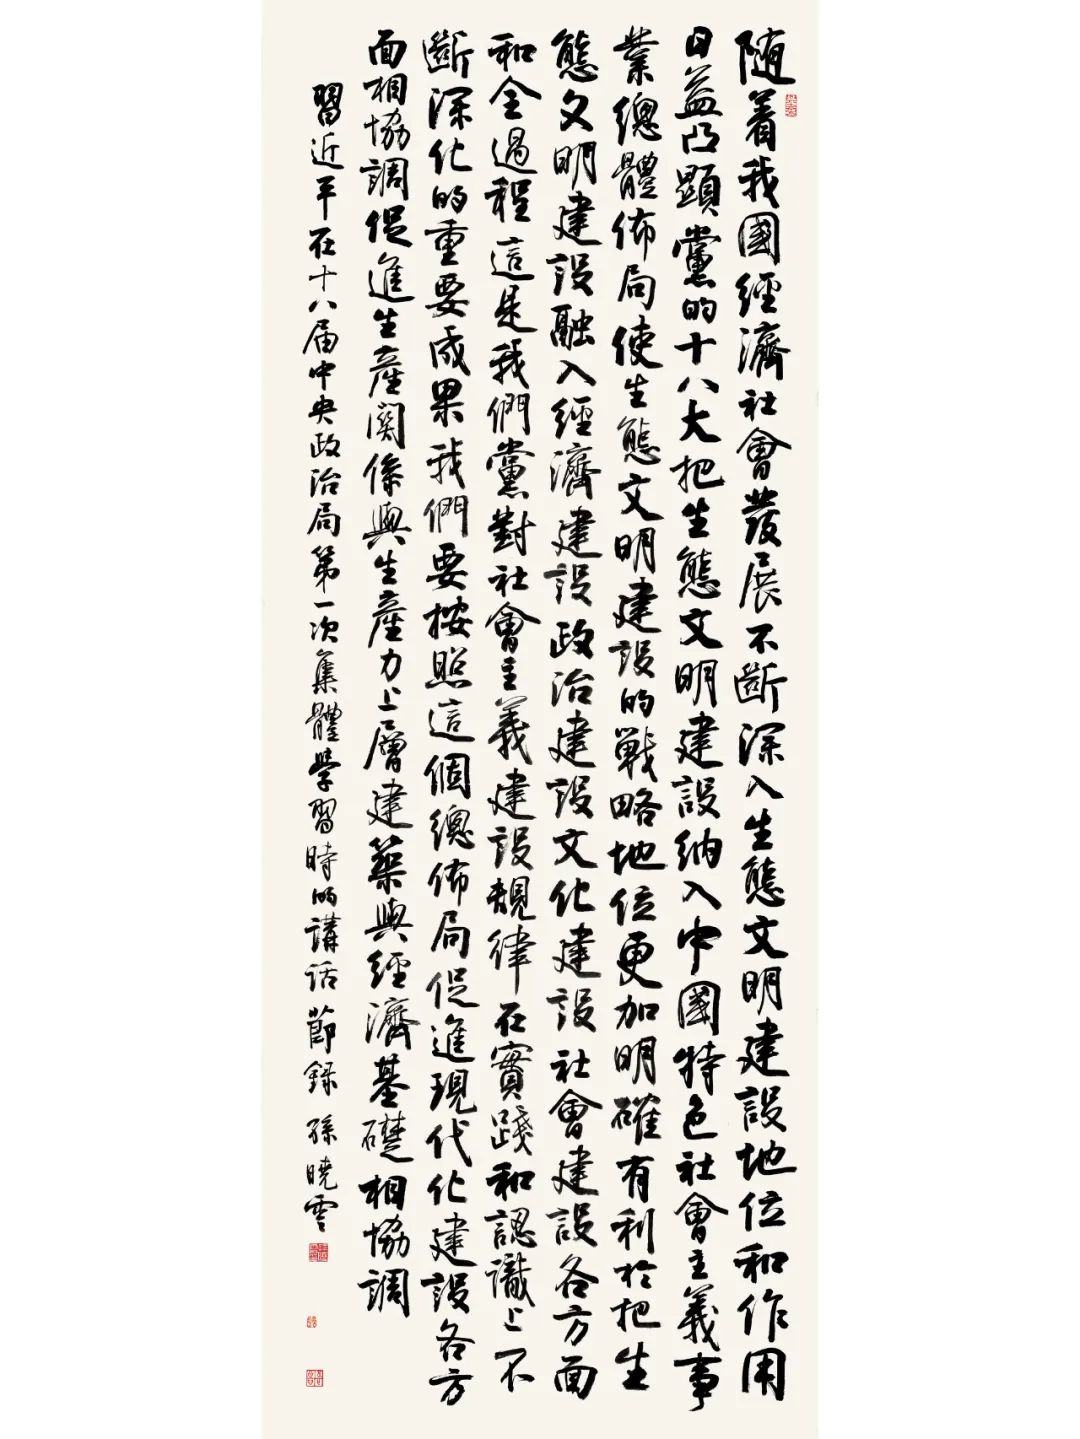 随着我國經濟社會發展不斷深入生態文明建設地位和作用
日益凸顯黨的十八大把生態文明建設納入中國特色社會主義事
業總體佈局使生態文明建設的戰略地位更加明確有利於把生
態文明建設融入經濟建設政治建設文化建設社會建設各方面
和全過程這是我們黨對社會主義建設規律在實踐和認識上不
斷深化的重要成果我們要按照這個總佈局促進現代化建設各方
面相協調促進生產關係與生產力上層建築與經濟基礎相協調
習近平在十八届中央政治局第一次集體學習時的講話節錄孫曉雲